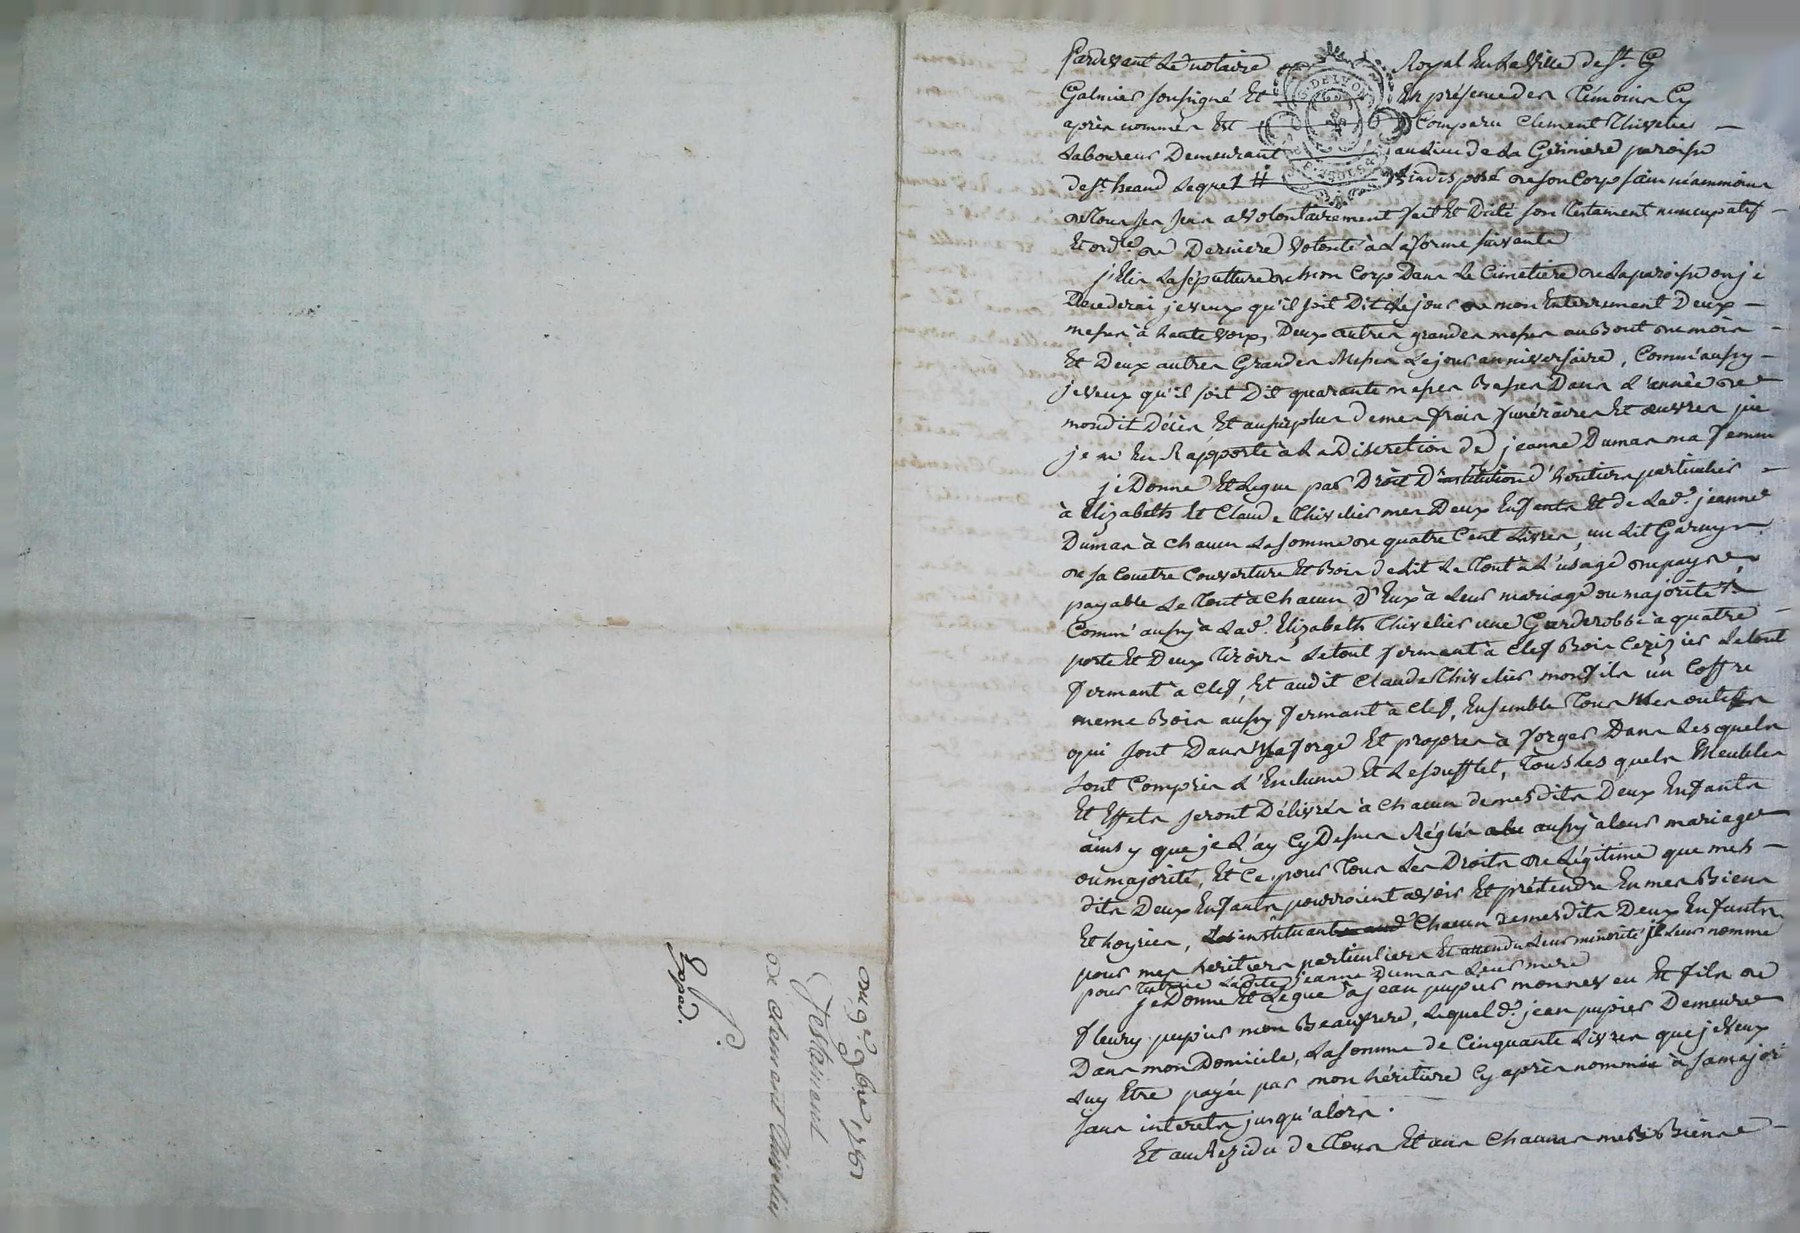 Pardevant Le notaire Royal En La Ville de St. G
Galmier sousigné Et En présence des Témoins Cy
après nommés Est Comparu Clement Thivelier
Laboureur Demeurant au Lieu de La paroisse
de St. heand Lequel # indisposé de son Corps sain néammoins
de Tous ses sens a Volontairement fait Et Dicté son Testament nuncupatif
Et ordce de Derniere Volonté à La forme suivante
j'Elis La sépulture de mon Corps Dans Le Cimetiere de La paroisse ou je
Décederai je veux qu'il soit Dit Le jour de mon Enterrement Deux
messes à haute voix, Deux autres grandes messes au Bout du mois
Et Deux autres Grandes Messes Le jour anniversaire, Comm'aussy
je veux qu'il soit Dit quarante messes Basses Dans L'année de
mondit Décès Et au surplus de mes frais funéraires Et œuvres pie
je m'En Rapporte à La Discretion de jeanne Dumas ma femme
je Donne Et Legue par Droit D'institution d'héritiers particulier
à Elizabeth Et Claude Thivelier mes Deux Enfants Et de Lad. jeanne
Dumas à chacun La somme de quatre Cent Livres, un Lit Garny
de sa Couetre Couverture Et Bois de Lit Le Tout à L'usage du pays
payable Le Tout à Chacun D'Eux à Leur mariage ou majorité
Comm'aussy à Lad. Elizabeth Thivelier une Garderobbe à quatre
porte Et Deux Tiroirs Le tout fermant à Clef Bois Cerizier Le tout
fermant à Clef, Et audit Claude Thivelier mon fils un Coffre
meme Bois aussy fermant à Clef, Ensemble Tous Mes outils
qui sont Dans Ma forge Et propres à forger Dans Lesquels
sont Compris L'Enclume Et Le soufflet, Tous Lesquels Meubles
Et Effets seront Délivrés à Chacun de mesdits Deux Enfants
ainsy que je L'ay Cy Dessus Réglés aussy à Leur mariage
ou majorité, Et Ce pour Tous Les Droits de Légitime que mes
dits Deux Enfants pourroient avoir Et prétendre En mes Biens
Et hoyries, Les instituant Chacun de mesdits Deux Enfants
pour mes héritiers particuliers Et attendu Leur minorité je Leur nomme
pour Tutrice Ladite jeanne Dumas Leur mere
je Donne Et Legue à jean pupier mon neveu Et fils de
fleury pupier mon Beaufrere, Lequel d. jean pupier Demeure
Dans mon Domicile, La somme de Cinquante Livres que je veux
Luy Etre payée par mon héritiere Cy après nommée à sa major
sans interets jusqu'alors.
Et au Rezidu de Tous Et uns Chacuns mes Biens
Du 9e 9bre 178
Testament
De Clement Thivelier
Exped.